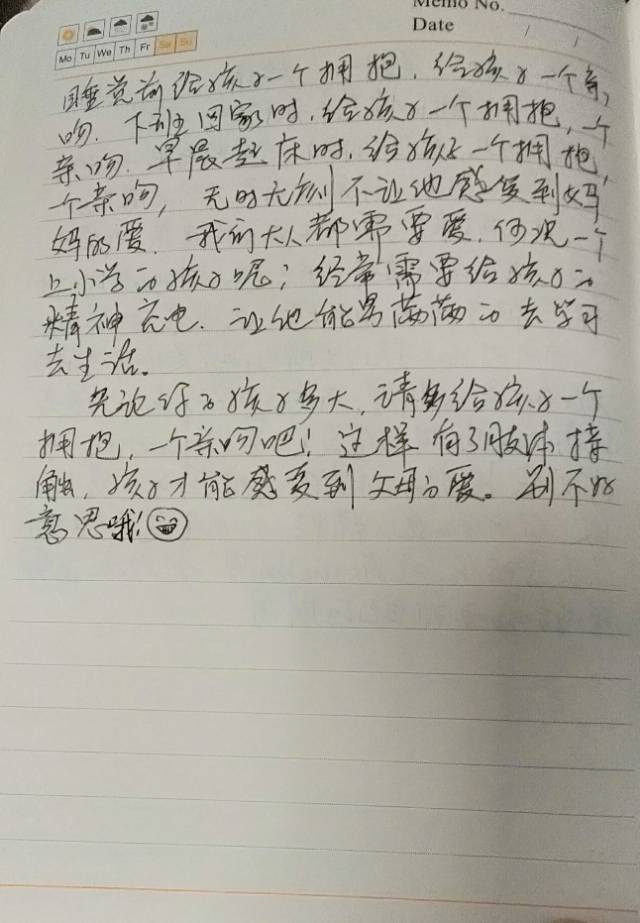 Memo No.
Date
Mo Tu We Th Fr Sa Su
睡觉前给孩子一个拥抱，给孩子一个亲
吻. 下班回家时，给孩子一个拥抱，一个
亲吻. 早晨起床时，给孩子一个拥抱，
一个亲吻，无时无刻不让他感受到妈
妈的爱. 我们大人都需要爱，何况一个
上小学的孩子呢；经常需要给孩子的
精神充电. 让他能量满满的去学习
去生活。
无论你的孩子多大，请多给孩子一个
拥抱，一个亲吻吧！这样有了肢体接
触，孩子才能感受到父母的爱。别不好
意思哦！